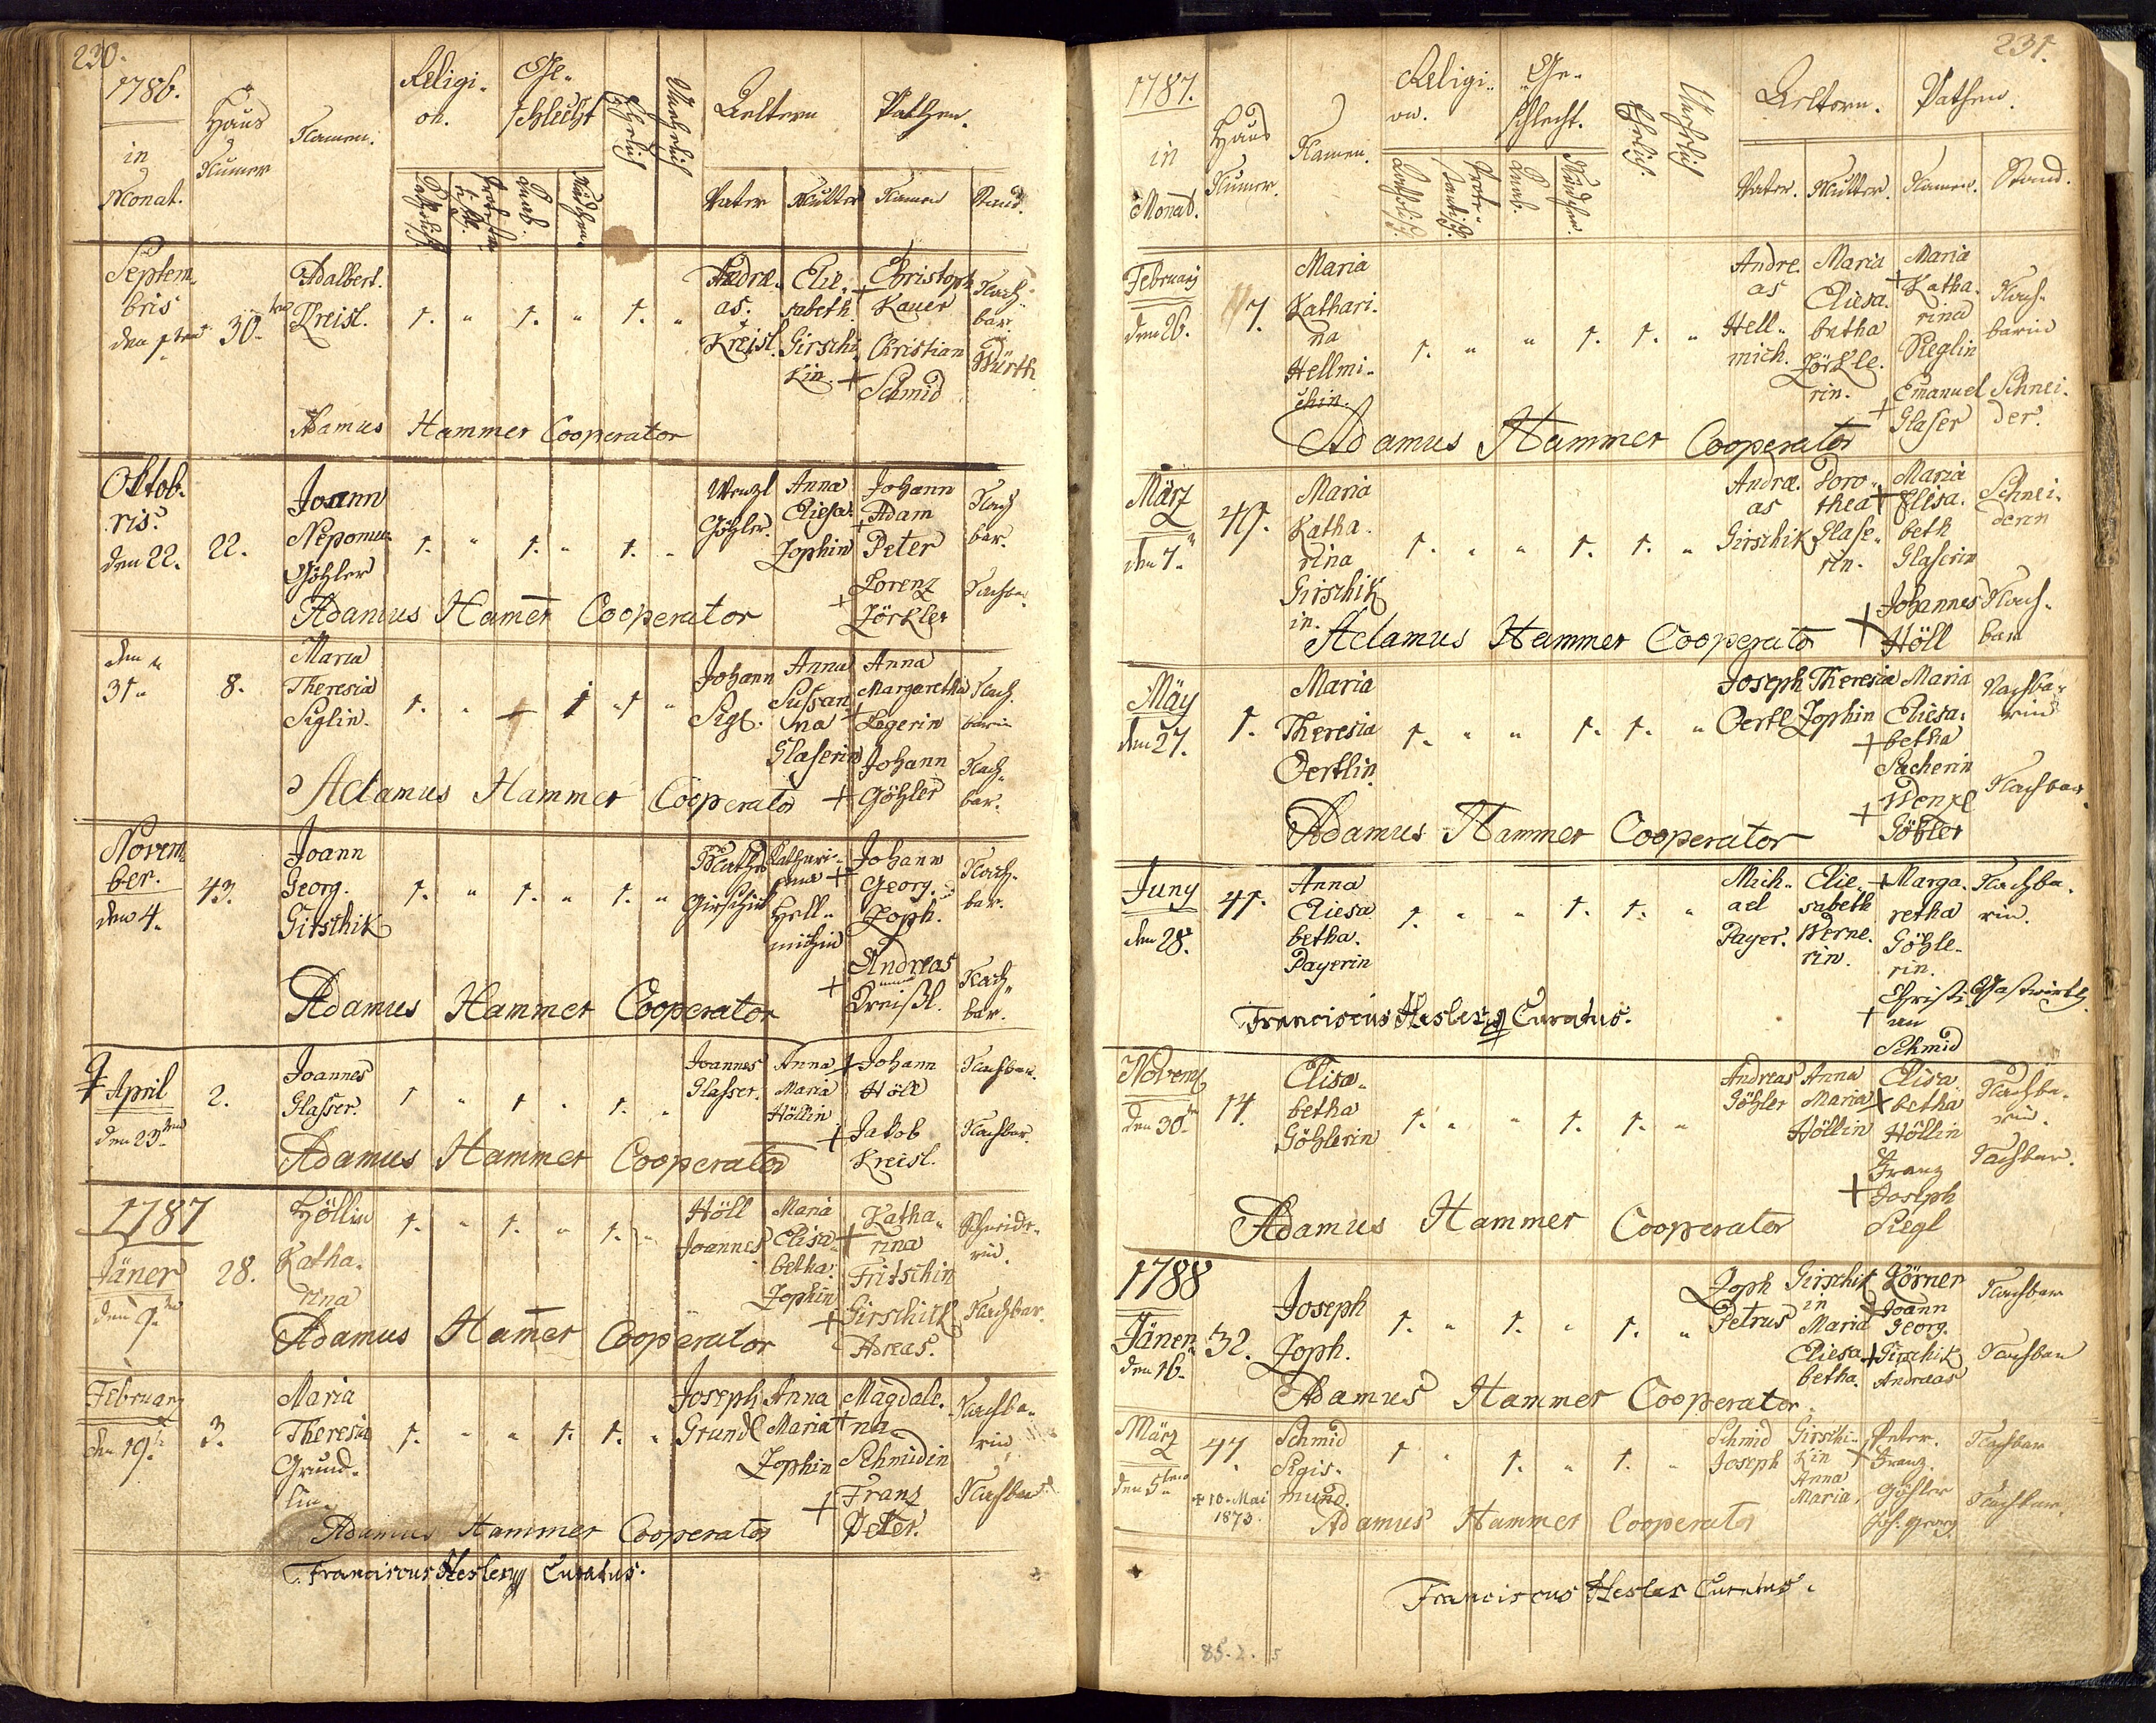 230.
1786.
in
Monat.
Haus
Numer
Namen.
Religi-
on.
Ge-
schlecht
Ehelich
Unehelich
Aeltern
Pathen.
Vater
Mutter
Namen
Stand.
Septem-
bris
30.
Adalbert.
Kreisl.
1. " 1. " 1. "
Andre-
as.
Kreisl.
Elie-
sabeth.
Girschi-
kin.
+ Christoph
Kauer
Christian
+ Schmid
Nach-
bar.
Würth
Adamus Hammer Cooperator
Oktob-
ris.
den 22.
22.
Joann
Nepomuc
Göhler
1. " 1. " 1. "
Wenzl
Göhler.
Anna
Eliesa.
Zophin
Johann
+ Adam
Peter
Lorenz
+ Zörkler
Nach
bar.
Nachbar
Adamus Hamer Cooperator
den
31.
8.
Maria
Theresia
Siglin.
1. " 1 " 1 "
Johann
Sigl.
Anna
Sussan
na
Glaserin
Anna
Margaretha
+ Legerin
Johann
+ Göhler
Nach
barin
Nach-
bar.
Adamus Hammer Cooperator
Novem-
ber.
den 4.
43.
Joann
Georg.
Girschik
1. " 1. " 1. "
Mathes
Girschik
Kathari-
na
Hell-
michin
Johann
+ Georg.
Zoph.
Andreas
+ Kreißl.
Nach-
bar.
Nach-
bar.
Adamus Hammer Cooperator
April
den 23.
2.
Joannes
Glasser.
1 " 1 " 1. "
Joannes
Glasser.
Anna
Maria
Höllin
+ Johann
Höll
+ Jakob
Kreisl.
Nachbar.
Nachbar.
Adamus Hammer Cooperator
1787
Jäner
den 9.
28.
Höllin
Katha-
rina
1. " 1. " 1. "
Höll
Joannes
Maria
Elisa-
betha.
Zophin
Katha-
+ rina
Fritschin
+ Girschick
Adreas.
Schneide-
rin.
Nachbar.
Adamus Hamer Cooperator
Februar
den 19.
3.
Maria
Theresia
Grund-
lin.
1. " " 1. 1. "
Joseph
Grundl
Anna
Maria
Zophin
Magdale-
+ na
Schmidin
+ Franz
Peter.
Nachba-
rin
Nachbar
Adamus Hammer Cooperator
Franciscus Hesler Curatus.
231.
1787.
in
Monat.
Haus
Numer.
Namen.
Religi-
on.
Ge-
schlecht.
Katholisch.
Prote-
stantisch.
Knab.
Mädchen.
Ehelich.
Unehelich
Aeltern.
Pathen.
Vater.
Mutter.
Namen.
Stand.
Februarj
den 26.
7.
Maria
Kathari-
na
Hellmi-
chin.
1. " " 1. 1. "
Andre-
as
Hell-
mich.
Maria
Eliesa-
betha
Zörkle-
rin.
Maria
+ Katha-
rina
Sieglin
Emanuel
+ Glaser
Nach-
barin
Schnei-
der.
Adamus Hammer Cooperator
März
den 7.
41.
Maria
Katha-
rina
Girschik
in.
1. " " 1. 1. "
Andre-
as
Girschik
Doro-
thea
Glase-
rin.
Maria
+ Elisa-
beth
Glaserin
+ Johannes
Höll
Schnei-
derin
Nach-
bar
Adamus Hammer Cooperator
Mäy
den 27.
1.
Maria
Theresia
Oertlin
1. " " 1. 1. "
Joseph
Oertl
Theresia
Zophin
Maria
Eliesa-
+ betha
Sacherin
+ Wenzl
Göhler
Nachba-
rin
Nachbar.
Adamus Hammer Cooperator
Juny
den 28.
41.
Anna
Eliesa
betha.
Payerin
1. " " 1. 1. "
Mich-
ael
Payer.
Elie-
sabeth
Werne-
rin.
+ Marga-
retha
Göhle-
rin.
Christi-
+ an
Schmid
Nachba-
rin.
Gastwirth
Franciscus Hesler Curatus.
Novemb
den 30.
14.
Elisa-
betha
Göhlerin
1. " " 1. 1. "
Andreas
Göhler
Anna
Maria
Höllin
Elisa-
+ betha
Höllin
Franz
+ Joseph
Siegl
Nachba-
rin.
Nachbar.
Adamus Hammer Cooperator
1788
Jäner
den 16.
32.
Joseph
Zoph.
1. " 1. " 1. "
Zoph
Petrus
Girschik
in
Maria
Eliesa
betha.
Körner
+ Joann
Georg.
+ Girschik
Andreas
Nachbar
Nachbar
Adamus Hammer Cooperator.
März
den 5.
47.
+ 10. Mai
1873.
Schmid
Sigis-
mund.
1 " 1. " 1. "
Schmid
Joseph
Girschi-
kin
Anna
Maria.
Peter.
+ Franz.
Göhler
Joh. Georg
Nachbar
Nachbar.
Adamus Hammer Cooperator
Franciscus Hesler Curatus.
85.2.